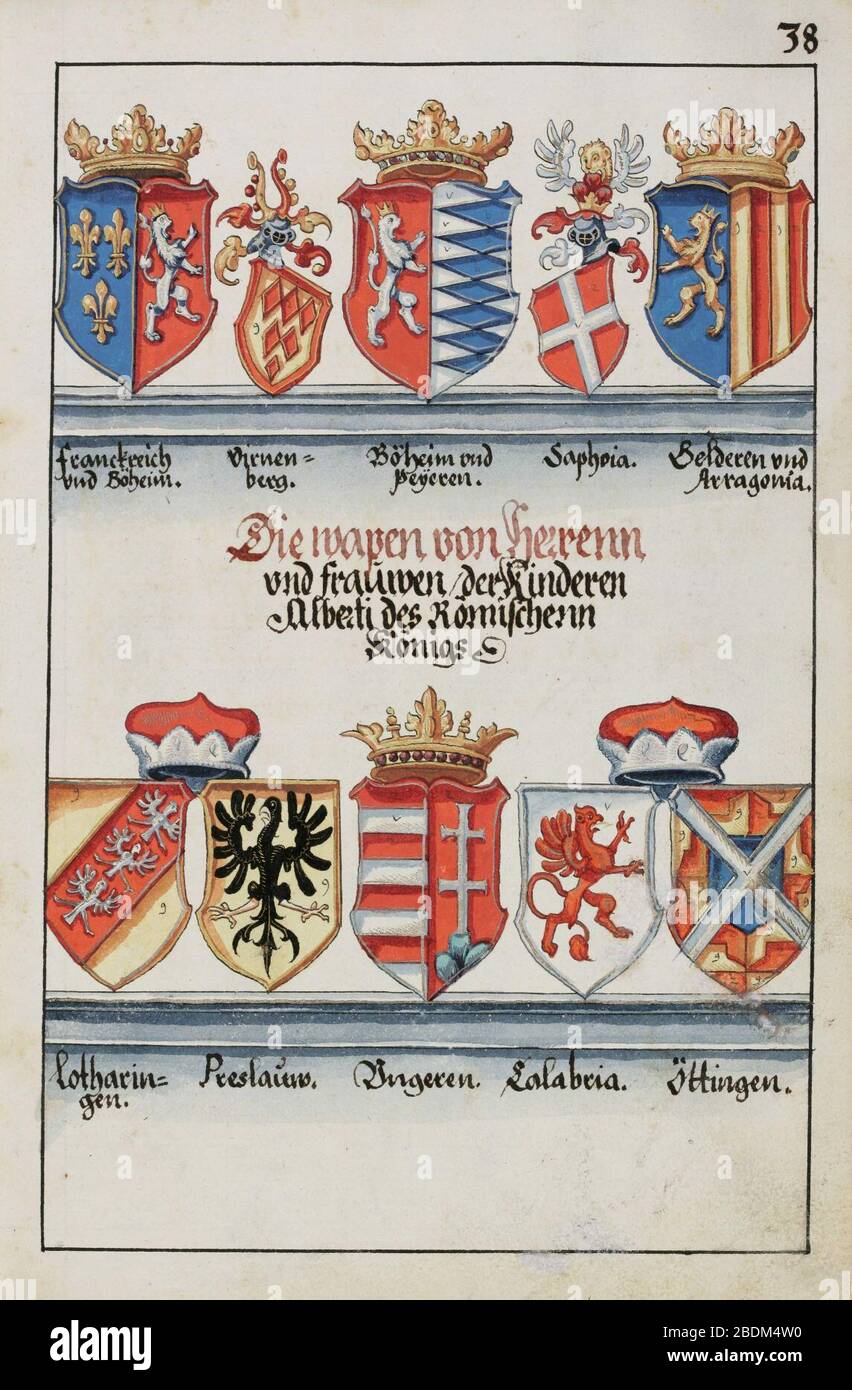 38
Franckreich
vnd Böheim.
Virnen=
berg.
Böheim vnd
Peÿeren.
Saphoia.
Gelderen vnd
Arragonia.
Die wapen von Herrenn
vnd frauwen / der Kinderen
Alberti des Römischenn
Königs
Lotharin=
gen.
Preslauw.
Vngeren.
Calabria.
Öttingen.
alamy
Image ID: 2BDM4W0
www.alamy.com